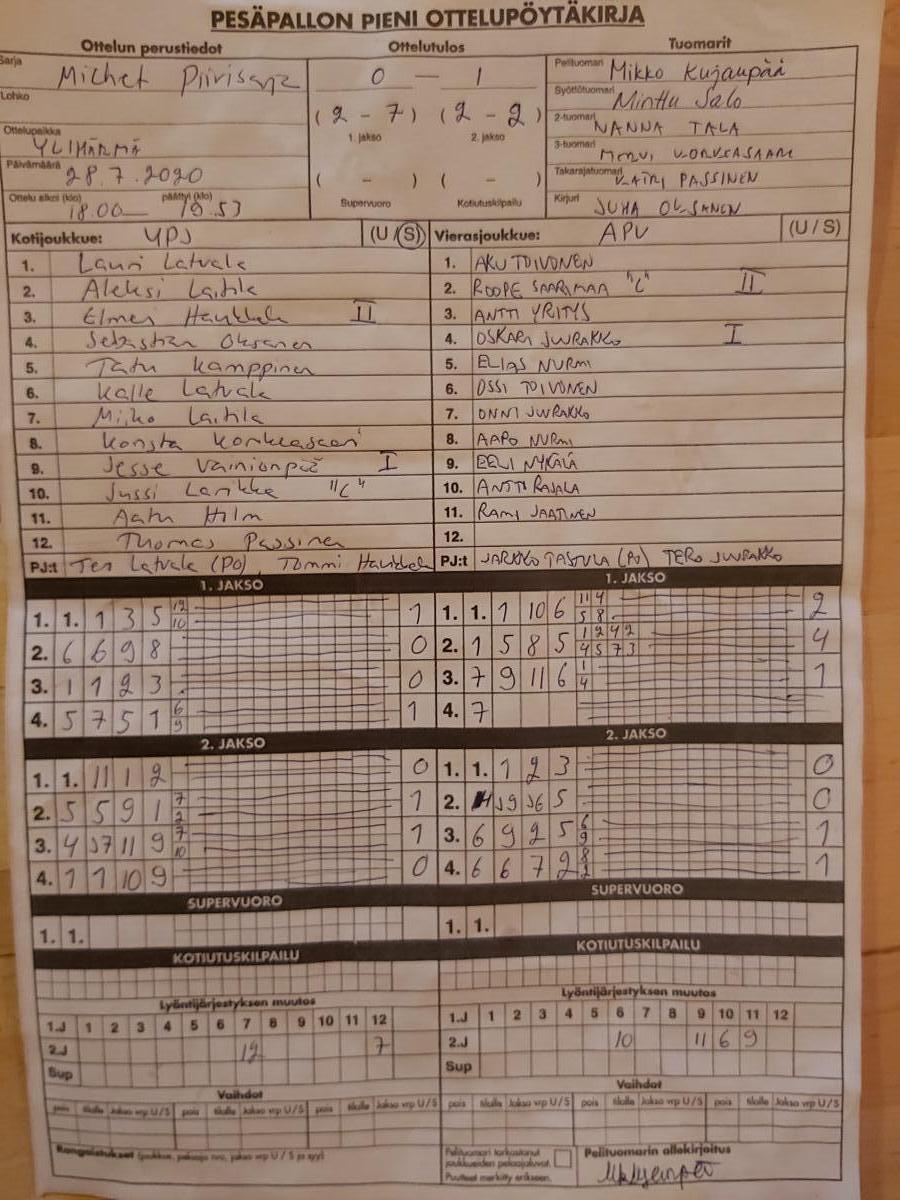 PESÄPALLON PIENI OTTELUPÖYTÄKIRJA
Ottelun perustiedot
Ottelutulos
Tuomarit
Sarja
Michet Piirisarja
Lohko
Ottelupaikka
YLIHÄRMÄ
Päivämäärä
28.7.2020
Ottelu alkoi (klo) päättyi (klo)
18.00 19.53
0 - 1
(2 - 7) (2 - 2)
1. jakso 2. jakso
( - ) ( - )
Supervuoro Kotiutuskilpailu
Pelituomari Mikko Kujanpää
Syöttötuomari Minttu Salo
2-tuomari NANNA TALA
3-tuomari MERVI KORKEASAARI
Takarajatuomari KATRI PASSINEN
Kirjuri JUHA OKSANEN
Kotijoukkue: YPJ (U/S)
1. Lauri Latvala
2. Aleksi Laitila
3. Elmer Haukkala II
4. Sebastian Oksanen
5. Tatu Kamppinen
6. Kalle Latvala
7. Miiko Laitila
8. Konsta Korkeasaari
9. Jesse Vainionpää I
10. Jussi Larikka "C"
11. Aatu Holm
12. Thomas Passinen
PJ:t Latvala (PO), Tommi
Vierasjoukkue: APV (U/S)
1. AKU TOIVONEN
2. ROOPE SAARIMAA "C" II
3. ANTTI YRITYS
4. OSKARI JUURAKKO I
5. ELIAS NURMI
6. OSSI TOIVONEN
7. ONNI JUURAKKO
8. AAPO NURMI
9. EELI NYKÄLÄ
10. ANTTI RAJALA
11. RAMI JAATINEN
12.
PJ:t JARKKO TASTULA (PO) TERO JUURAKKO
1. JAKSO
1. 1. 1 3 5 12 10 1
2. 6 6 9 8 0
3. 1 1 2 3 0
4. 5 7 5 1 6 9 1
1. JAKSO
1. 1. 1 10 6 11 4 5 8 2
2. 1 5 8 5 1 2 4 2 4 5 7 3 4
3. 7 9 11 6 1 4 1
4. 7
2. JAKSO
1. 1. 11 1 2 0
2. 5 5 9 1 7 2 1
3. 4 11 9 7 10 1
4. 1 1 10 9 0
2. JAKSO
1. 1. 1 2 3 0
2. 5 0
3. 6 9 2 5 6 9 1
4. 6 6 7 2 8 1
SUPERVUORO
1. 1.
SUPERVUORO
1. 1.
KOTIUTUSKILPAILU
KOTIUTUSKILPAILU
Lyöntijärjestyksen muutos
1.J 1 2 3 4 5 6 7 8 9 10 11 12
2.J 12 7
Sup
Lyöntijärjestyksen muutos
1.J 1 2 3 4 5 6 7 8 9 10 11 12
2.J 10 11 6 9
Sup
Vaihdot
pois tilalle Jakso vrp U/S pois tilalle Jakso vrp U/S pois tilalle Jakso vrp U/S
Vaihdot
pois tilalle Jakso vrp U/S pois tilalle Jakso vrp U/S pois tilalle Jakso vrp U/S
Rangaistukset (joukkue, pelaaja nro, jakso vrp U / S ja syy)
Pelituomari tarkastanut
joukkueiden pelaajaluvat.
Puutteet merkitty erikseen.
Pelituomarin allekirjoitus